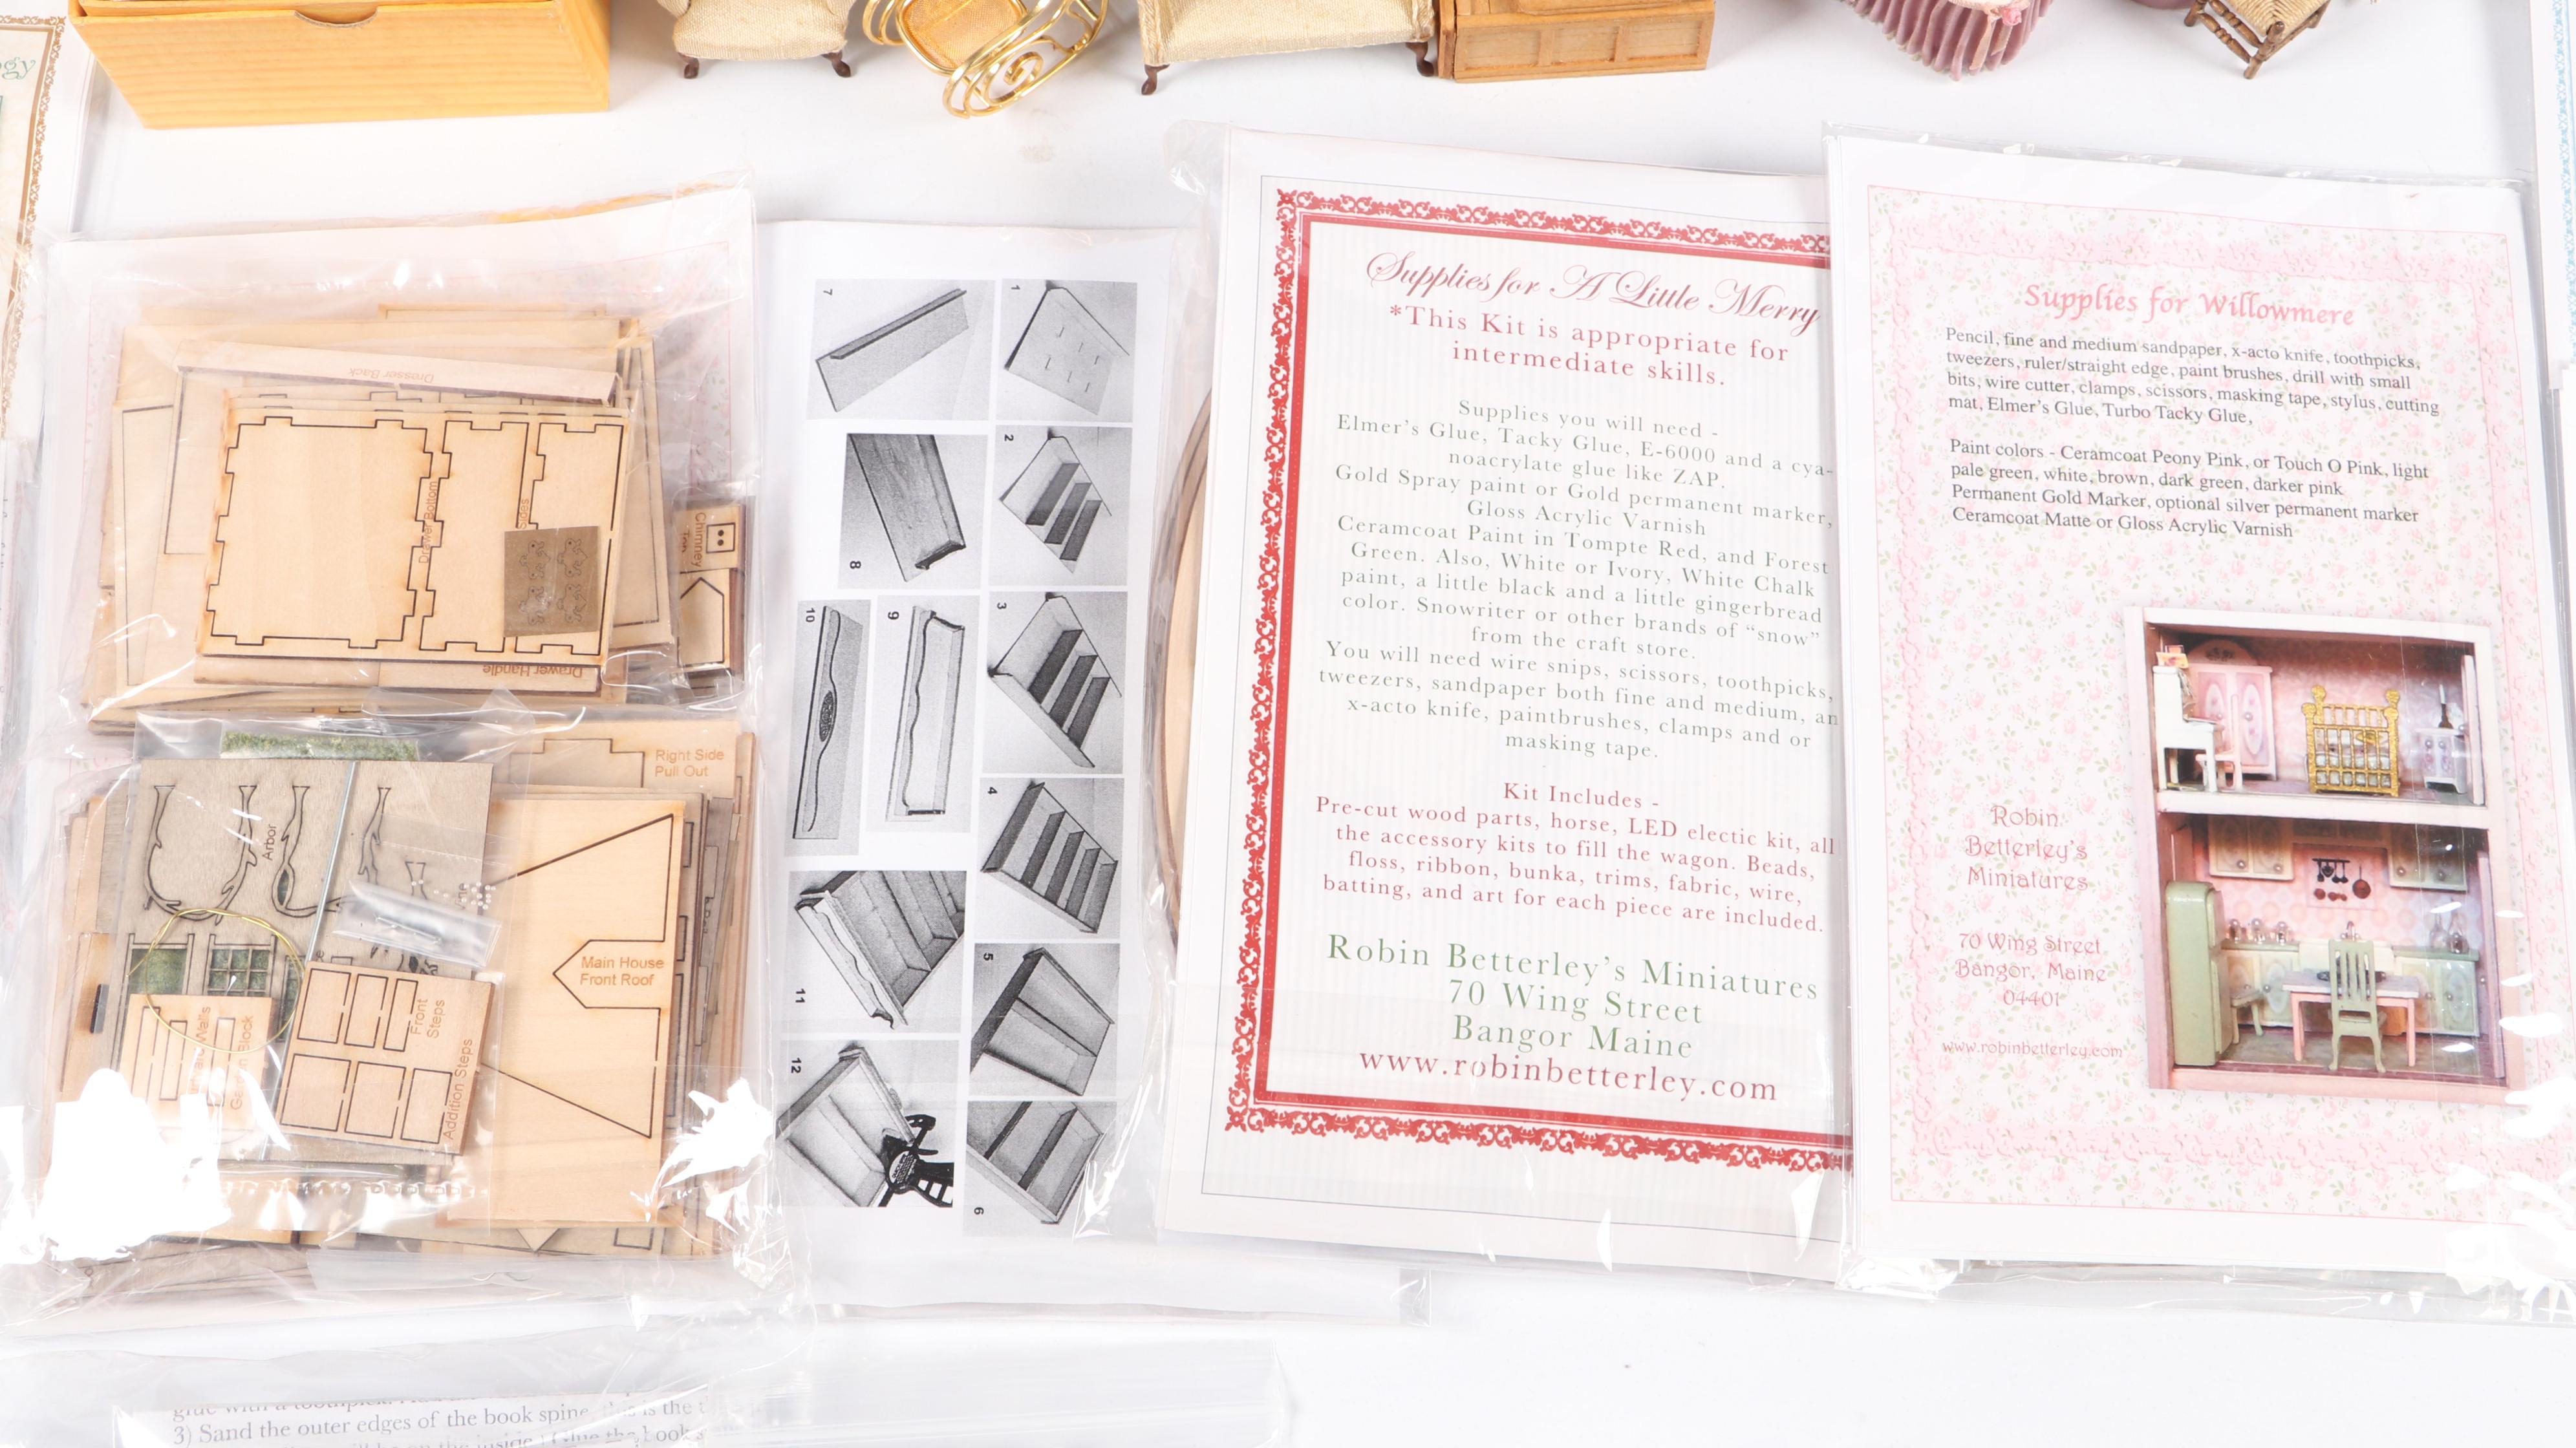 gy
Dresser Back
Drawer Bottom
Sides
Drawer Handle
Chimney
Right Side
Pull Out
Arbor
Main House
Front Roof
Walls
Front
Steps
Addition Steps
1
2
3
4
5
6
7
8
9
10
11
12
Supplies for A Little Merry
*This Kit is appropriate for
intermediate skills.
Supplies you will need -
Elmer's Glue, Tacky Glue, E-6000 and a cya-
noacrylate glue like ZAP.
Gold Spray paint or Gold permanent marker,
Gloss Acrylic Varnish
Ceramcoat Paint in Tompte Red, and Forest
Green. Also, White or Ivory, White Chalk
paint, a little black and a little gingerbread
color. Snowriter or other brands of "snow"
from the craft store.
You will need wire snips, scissors, toothpicks,
tweezers, sandpaper both fine and medium, an
x-acto knife, paintbrushes, clamps and or
masking tape.
Kit Includes -
Pre-cut wood parts, horse, LED electic kit, all
the accessory kits to fill the wagon. Beads,
floss, ribbon, bunka, trims, fabric, wire,
batting, and art for each piece are included.
Robin Betterley's Miniatures
70 Wing Street
Bangor Maine
www.robinbetterley.com
Supplies for Willowmere
Pencil, fine and medium sandpaper, x-acto knife, toothpicks,
tweezers, ruler/straight edge, paint brushes, drill with small
bits, wire cutter, clamps, scissors, masking tape, stylus, cutting
mat, Elmer's Glue, Turbo Tacky Glue,
Paint colors - Ceramcoat Peony Pink, or Touch O Pink, light
pale green, white, brown, dark green, darker pink
Permanent Gold Marker, optional silver permanent marker
Ceramcoat Matte or Gloss Acrylic Varnish
Robin
Betterley's
Miniatures
70 Wing Street
Bangor, Maine
04401
www.robinbetterley.com
glue with a toothpick.
3) Sand the outer edges of the book spine, this is the
be on the inside. Glue the book